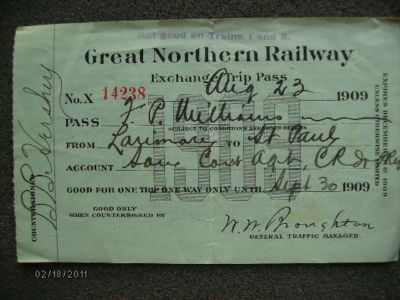 Not good on Trains 1 and 2.
Great Northern Railway
Exchange Trip Pass
Aug 23 1909
No. X 14238
PASS J. P. Williams
SUBJECT TO CONDITIONS ENDORSED HEREON
FROM Larimore TO St Paul
ACCOUNT Coml Agt,
GOOD FOR ONE TRIP ONE WAY ONLY UNTIL Sept 30 1909
GOOD ONLY
WHEN COUNTERSIGNED BY
W. W. Broughton
GENERAL TRAFFIC MANAGER.
COUNTERSIGNED
1909
UNLESS OTHERWISE LIMITED
02/18/2011